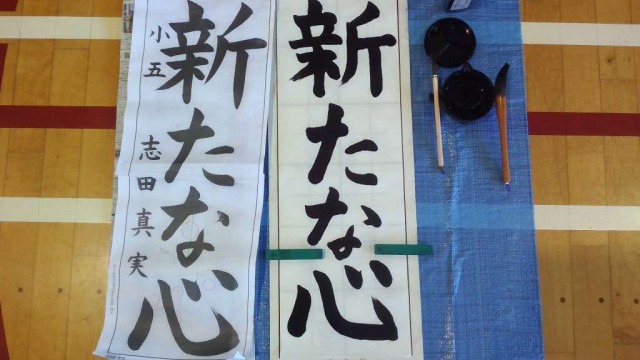 新たな心
小五 志田真実
新たな心